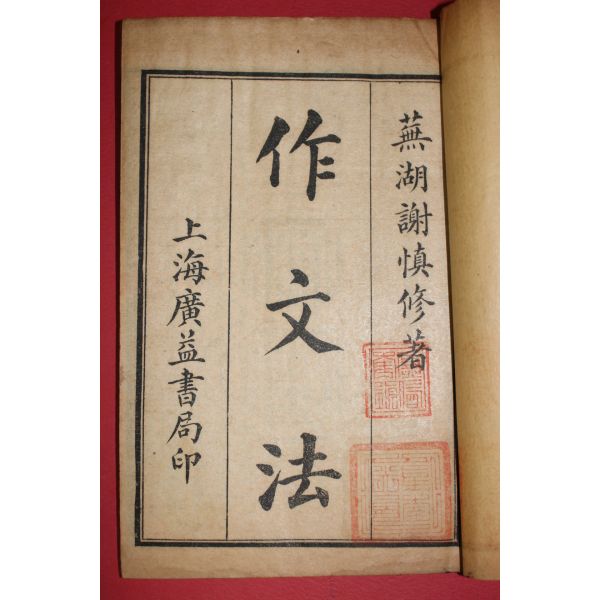 蕪湖謝慎修著
作文法
上海廣益書局印